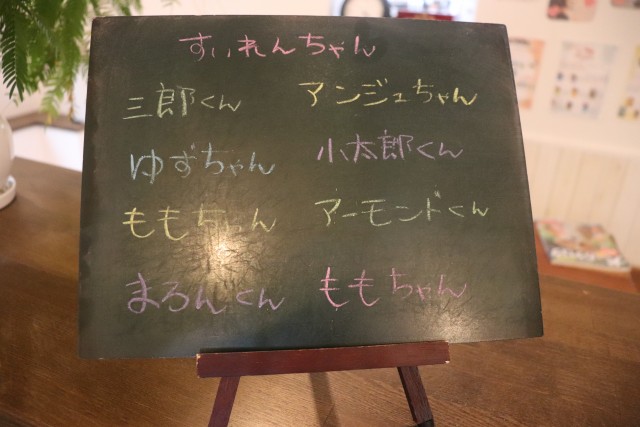 すいれんちゃん
三郎くん アンジュちゃん
ゆずちゃん 小太郎くん
ももちゃん アーモンドくん
まろんくん ももちゃん